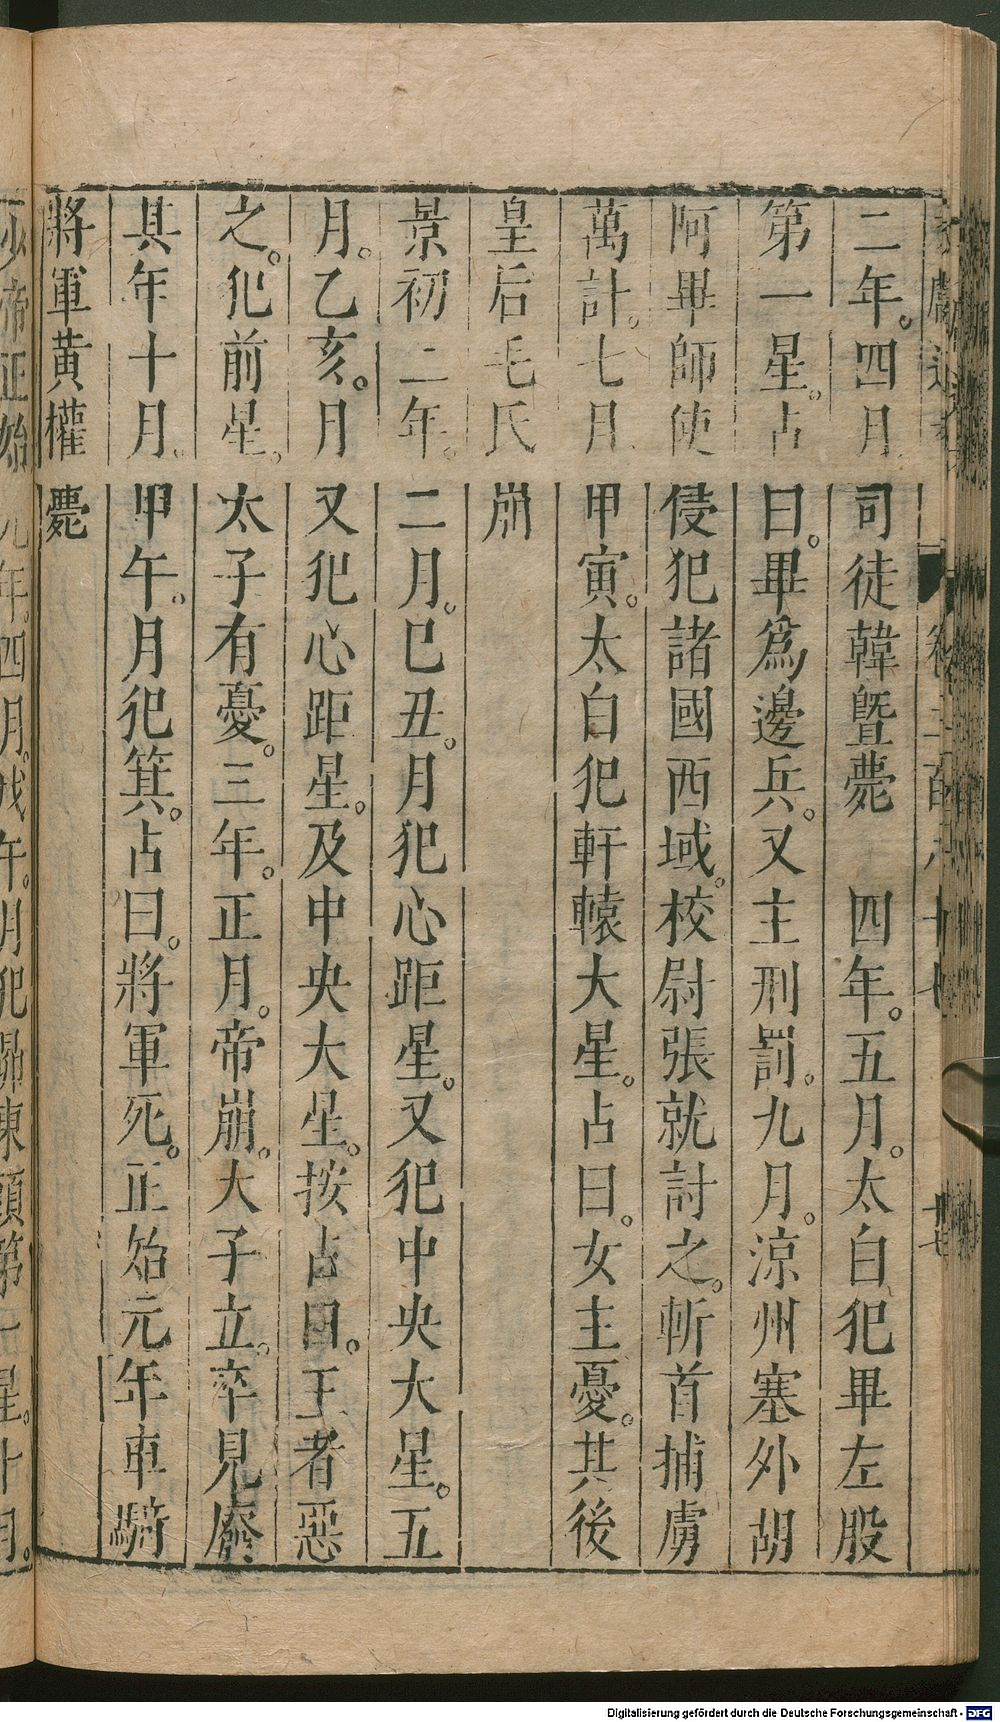 二年。四月司徒韓曁薨　四年。五月。太白犯畢左股
第一星。占曰。畢爲邊兵。又主刑罰。九月。涼州塞外胡
阿畢師使侵犯諸國西域。校尉張就討之。斬首捕虜
萬計。七月甲寅。太白犯軒轅大星。占曰。女主憂。其後
皇后毛氏崩
景初二年。二月。巳丑。月犯心距星。又犯中央大星。五
月。乙亥。月又犯心距星。及中央大星。按占曰。王者惡
之。犯前星。太子有憂。三年。正月。帝崩。太子立。卒見廢
其年十月。甲午。月犯箕。占曰。將軍死。正始元年車騎
將軍黃權薨
少帝正始元年。四月。戊午。月犯昴東頭第一星。十月。
Digitalisierung gefördert durch die Deutsche Forschungsgemeinschaft - DFG